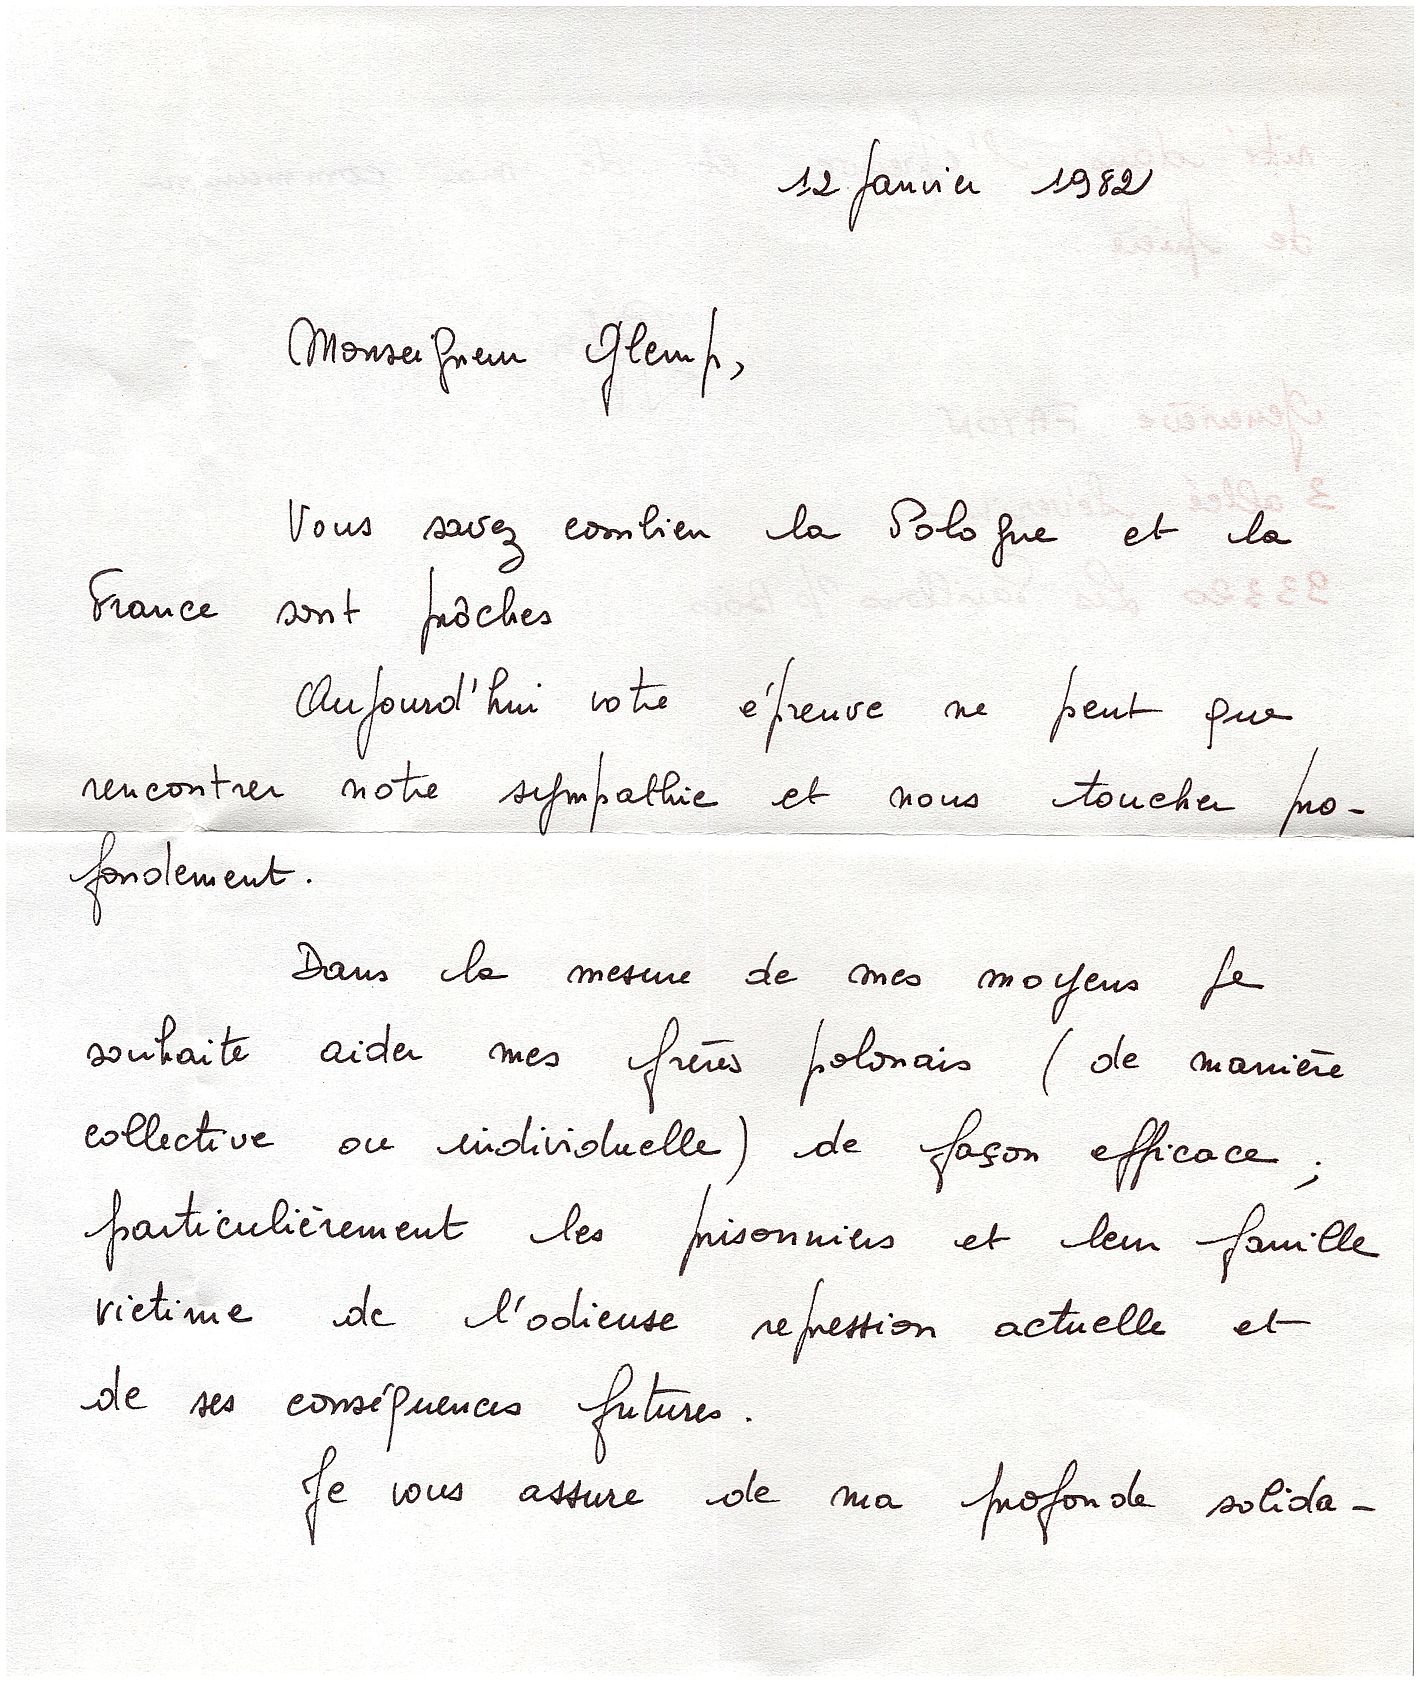 12 janvier 1982
Monseigneur Glemp,
Vous savez combien la Pologne et la
France sont prôches
Aujourd'hui votre épreuve ne peut que
rencontrer notre sympathie et nous toucher pro-
fondement.
Dans la mesure de mes moyens je
souhaite aider mes frères polonais ( de manière
collective ou individuelle) de façon efficace ;
particulièrement les prisonniers et leur famille
victime de l'odieuse repression actuelle et
de ses conséquences futures.
Je vous assure de ma profonde solida-